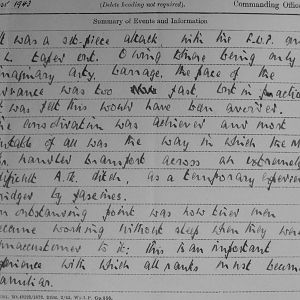 1943
(Delete heading not required).
Commanding Officer
Summary of Events and Information
It was a set-piece attack, with the S.P.
L. taped out. Owing to there being only
imaginary Arty. barrage, the pace of the
advance was too fast, but in action
it was felt this would have been avoided.
The consolidation was achieved and most
notable of all was the way in which the
handled transport across an extremely
difficult A.Tk. ditch, as a temporary
bridged by fascines.
An outstanding point was how tired men
became working without sleep when they were
unaccustomed to it: this is an important
experience with which all ranks must become
familiar.